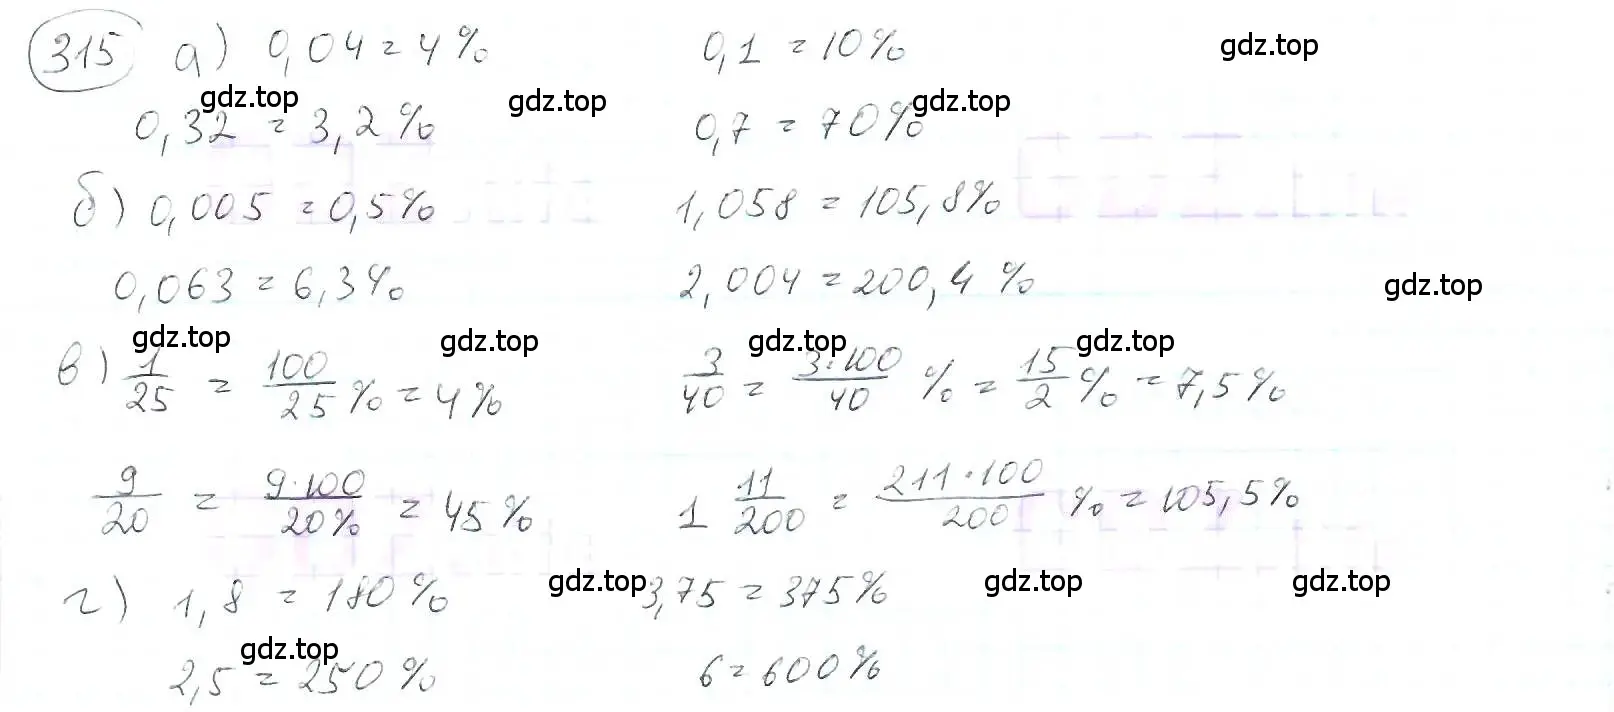 315 а) 0,04 = 4% 0,1 = 10% gdz.top
gdz.top gdz.top gdz.top
0,32 = 3,2% 0,7 = 70%
б) 0,005 = 0,5% 1,058 = 105,8%
0,063 = 6,3% 2,004 = 200,4 % gdz.top
gdz.top gdz.top gdz.top gdz.top
в) 1/25 = 100/25 % = 4% 3/40 = 3·100/40 % = 15/2 % = 7,5%
9/20 = 9·100/20% = 45% 1 11/200 = 211·100/200 % = 105,5%
г) 1,8 = 180% gdz.top 3,75 = 375% gdz.top gdz.top
gdz.top
2,5 = 250% 6 = 600%